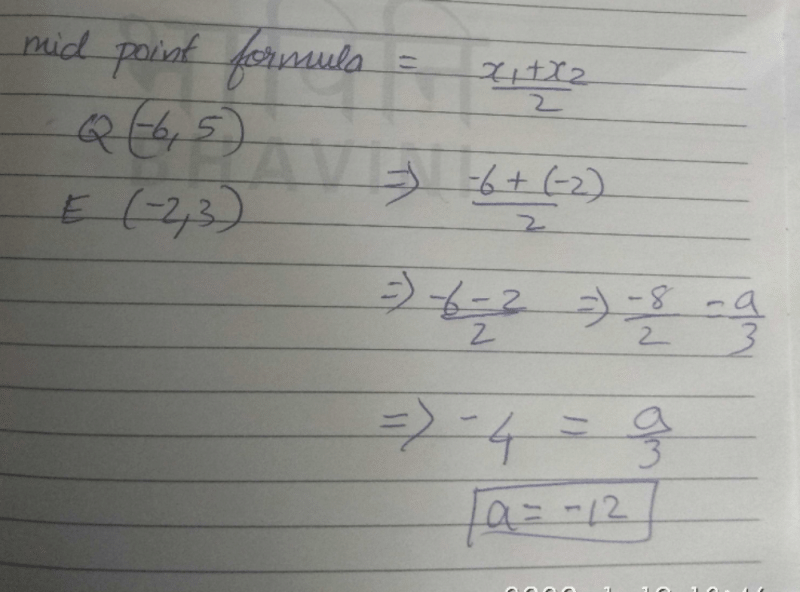 mid point formula = x₁+x₂/2
Q (-6, 5)
=> -6 + (-2)/2
E (-2, 3)
=> -6-2/2 => -8/2 = a/3
=> -4 = a/3
a = -12
BHAVINI